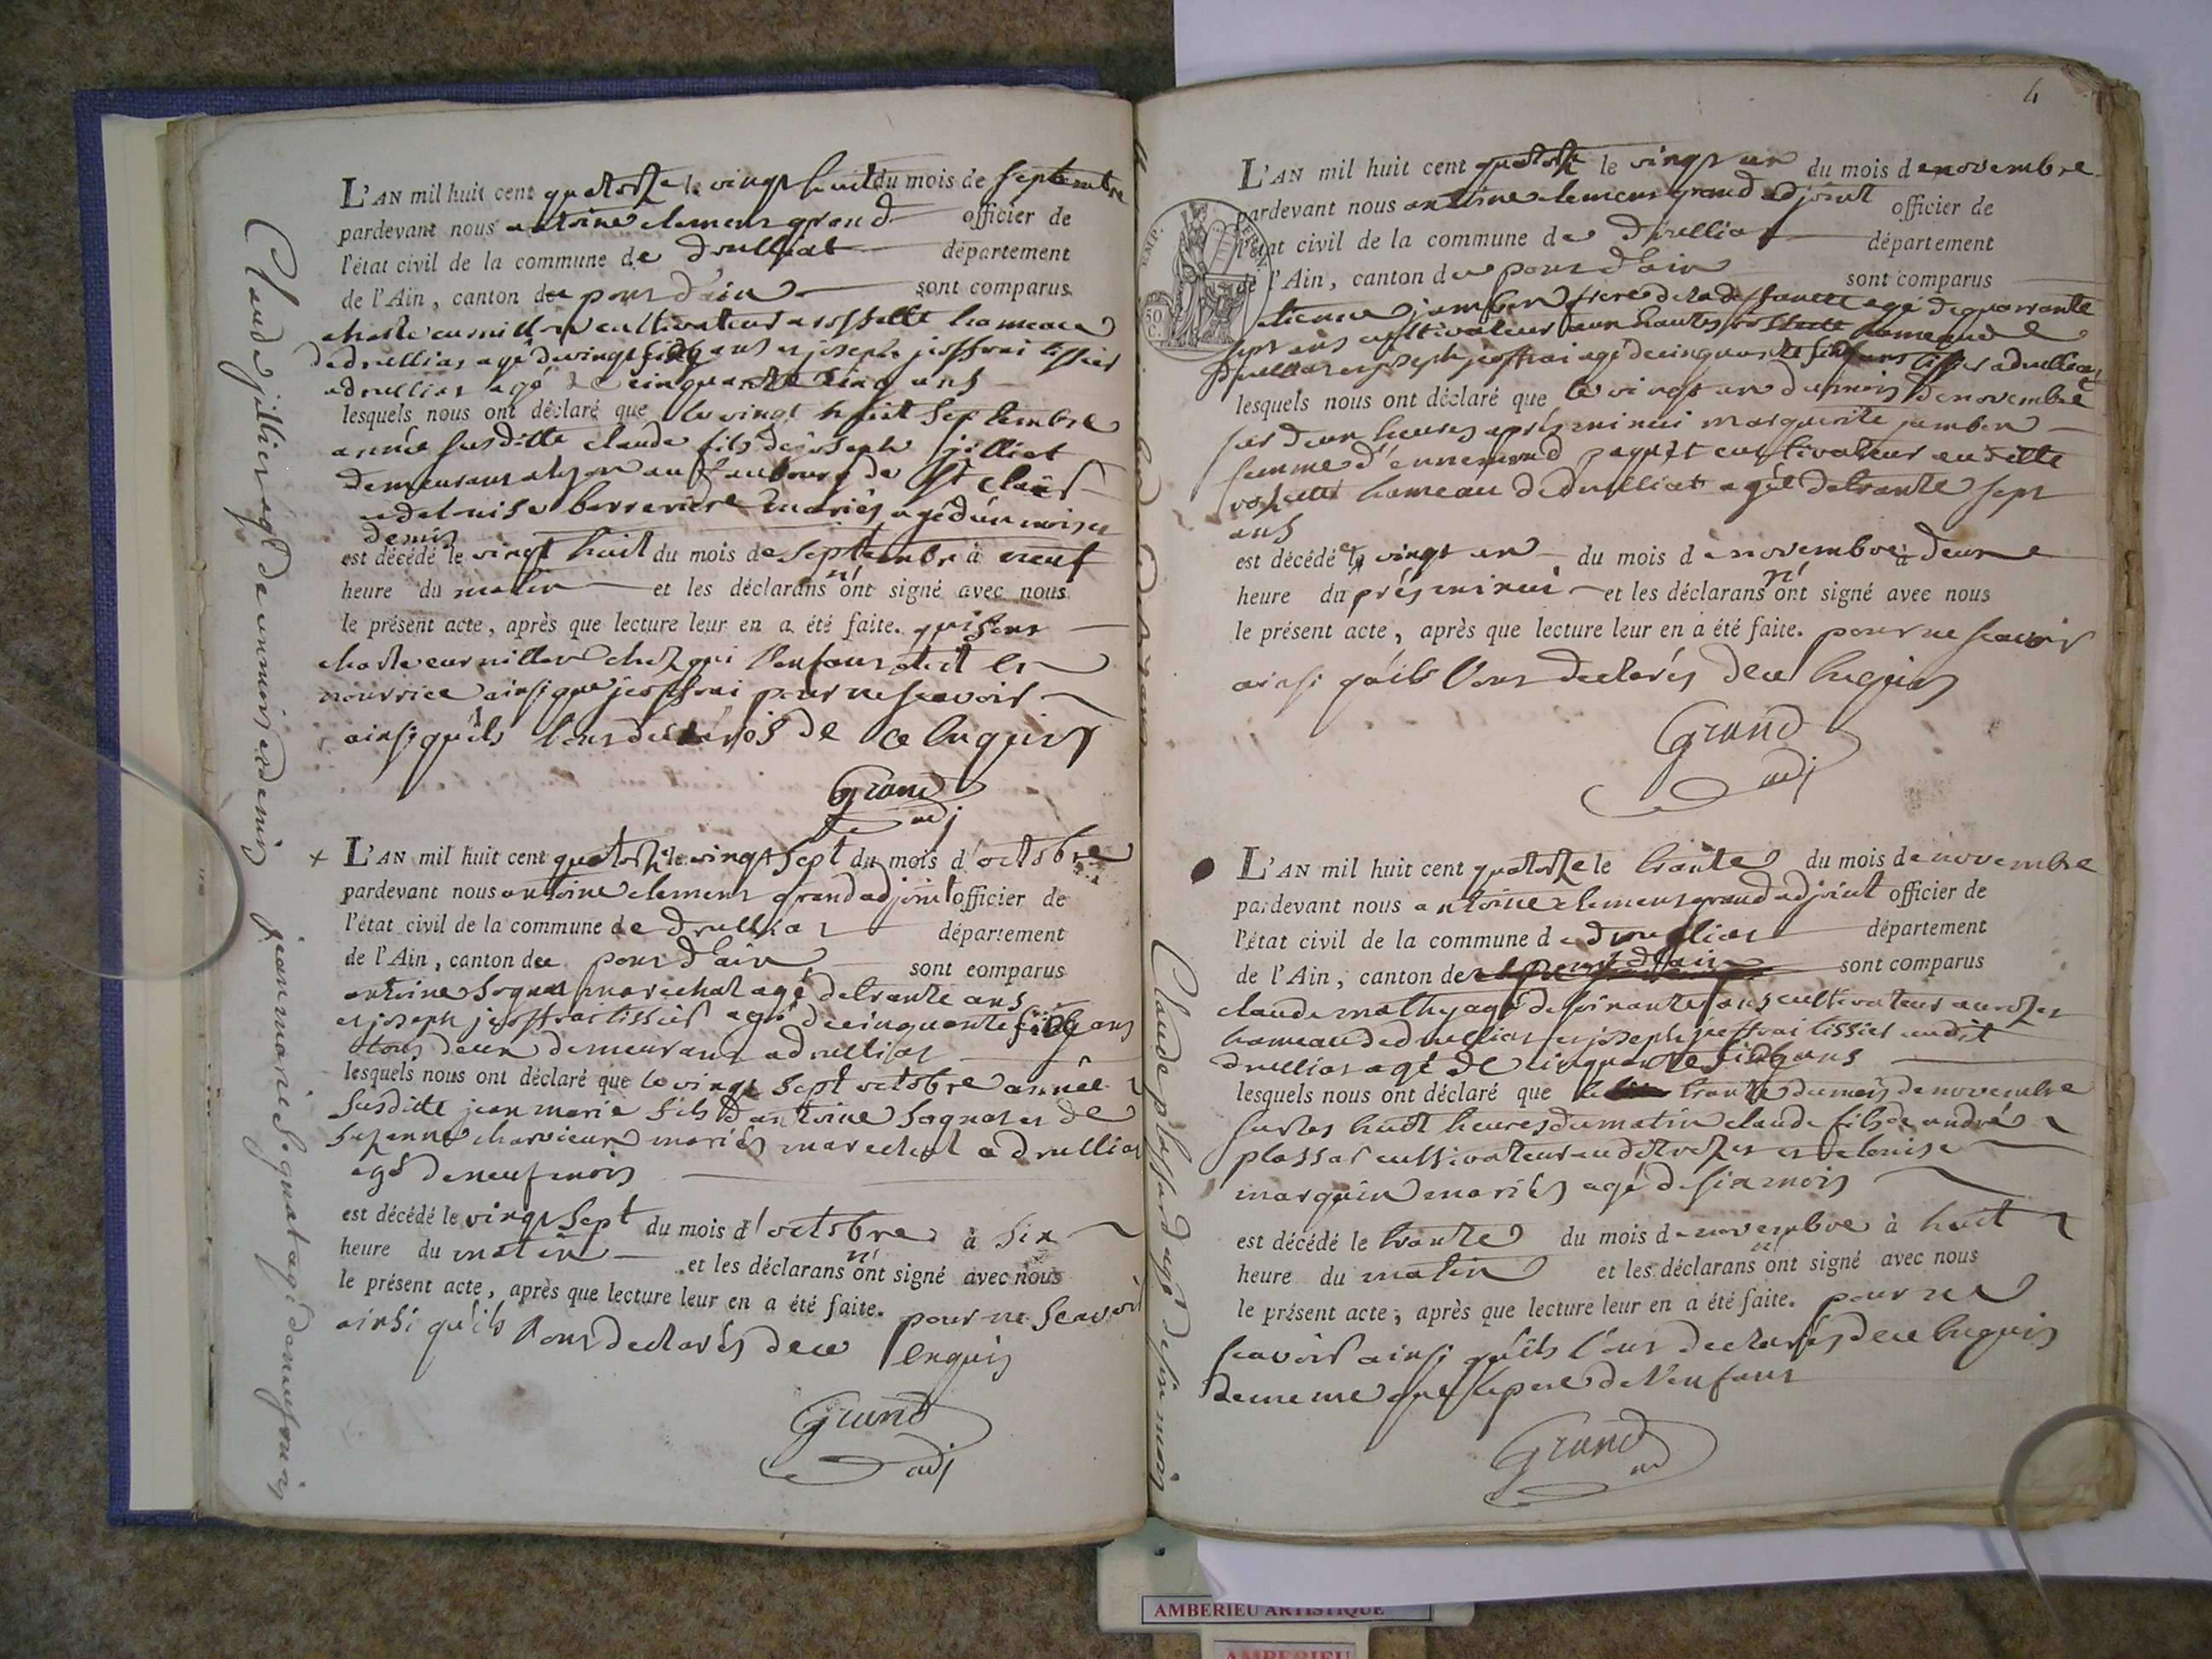 L'AN mil huit cent quatorze le vingt huit du mois de septembre
pardevant nous antoine clement grand officier de
l'état civil de la commune de druilliat département
de l'Ain, canton de pont d'ain sont comparus
cultivateur a rossette hameau
de druilliat agé de vingt cinq ans et joseph jeoffrai tissier
a druilliat agé de cinquante cinq ans
lesquels nous ont déclaré que le vingt huit septembre
année susditte claude fils de joseph jilliet
demeurant a lyon au faubourg de st clair
et de louise mariés agé d'un mois et
demis
est décédé le vingt huit du mois de septembre à neuf
heure du matin et les déclarans n'ont signé avec nous
le présent acte, après que lecture leur en a été faite. qui sont
chez qui l'enfant etoit en
nourrice ainsi que jeoffrai pour ne scavoir
ainsi qu'ils l'ont declarés de ce enquis
Grand
adj
Claude jilliet agé d'un mois et demis
+ L'AN mil huit cent quatorze le vingt sept du mois d'octobre
pardevant nous antoine clement grand adjoint officier de
l'état civil de la commune de druilliat département
de l'Ain, canton de pont d'ain sont comparus
antoine sognat marechal agé de trante ans
et joseph jeoffrai tissier agé de cinquante cinq ans
tous deux demeurant a druilliat
lesquels nous ont déclaré que le vingt sept octobre année
susditte jean marie fils d'antoine sognat et de
suzanne charvieux mariés marechal a druilliat
agé de neuf mois
est décédé le vingt sept du mois d'octobre à six
heure du matin et les déclarans n'ont signé avec nous
le présent acte, après que lecture leur en a été faite. pour ne scavoir
ainsi qu'ils l'ont declarés de ce enquis
Grand
adj
jean marie sognat agé de neuf mois
4
L'AN mil huit cent quatorze le vingt un du mois de novembre
pardevant nous antoine clement grand adjoint officier de
l'état civil de la commune de druilliat département
de l'Ain, canton de pont d'ain sont comparus
etienne jambon frere de la deffunte agé de quarrante
sept ans cultivateur aux hautes rossette hameau de
druilliat et joseph jeoffrai agé de cinquante cinq ans tissier a druilliat
lesquels nous ont déclaré que le vingt un du mois de novembre
sur deux heures après minui marguerite jambon
femme d'ennemond paquet cultivateur au ditte
rossette hameau de druilliat agée de trante sept
ans
est décédée le vingt un du mois de novembre à deux
heure du près minui et les déclarans n'ont signé avec nous
le présent acte, après que lecture leur en a été faite. pour ne scavoir
ainsi qu'ils l'ont declarés de ce enquis
Grand
adj
L'AN mil huit cent quatorze le trante du mois de novembre
pardevant nous antoine clement grand adjoint officier de
l'état civil de la commune de druilliat département
de l'Ain, canton de pont d'ain sont comparus
claude mathy agé de soixante ans cultivateur au rozet
hameau de druilliat et joseph jeoffrai tissier audit
druilliat agé de cinquante cinq ans
lesquels nous ont déclaré que le trante du mois de novembre
sur les huit heures du matin claude fils de andré
plassat cultivateur audit rozet et de louise
marquin mariés agé de six mois
est décédé le trante du mois de novembre à huit
heure du matin et les déclarans n'ont signé avec nous
le présent acte, après que lecture leur en a été faite. pour ne
scavoir ainsi qu'ils l'ont declarés de ce enquis
de meme que le pere de l'enfant
Grand
adj
Claude plassard agé de six mois
AMBERIEU ARTISTIQUE
AMBERIEU